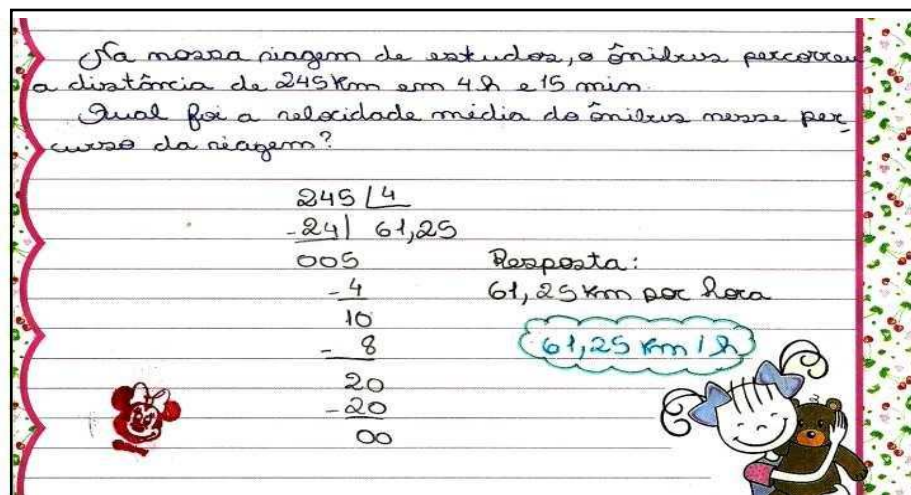 Na nossa viagem de estudos, o ônibus percorreu
a distância de 245 Km em 4 h e 15 min.
Qual foi a velocidade média do ônibus nesse per-
curso da viagem?
245 | 4
-24| 61,25
005
-4
10
- 8
20
-20
00
Resposta:
61,25 Km por hora
61,25 Km/h